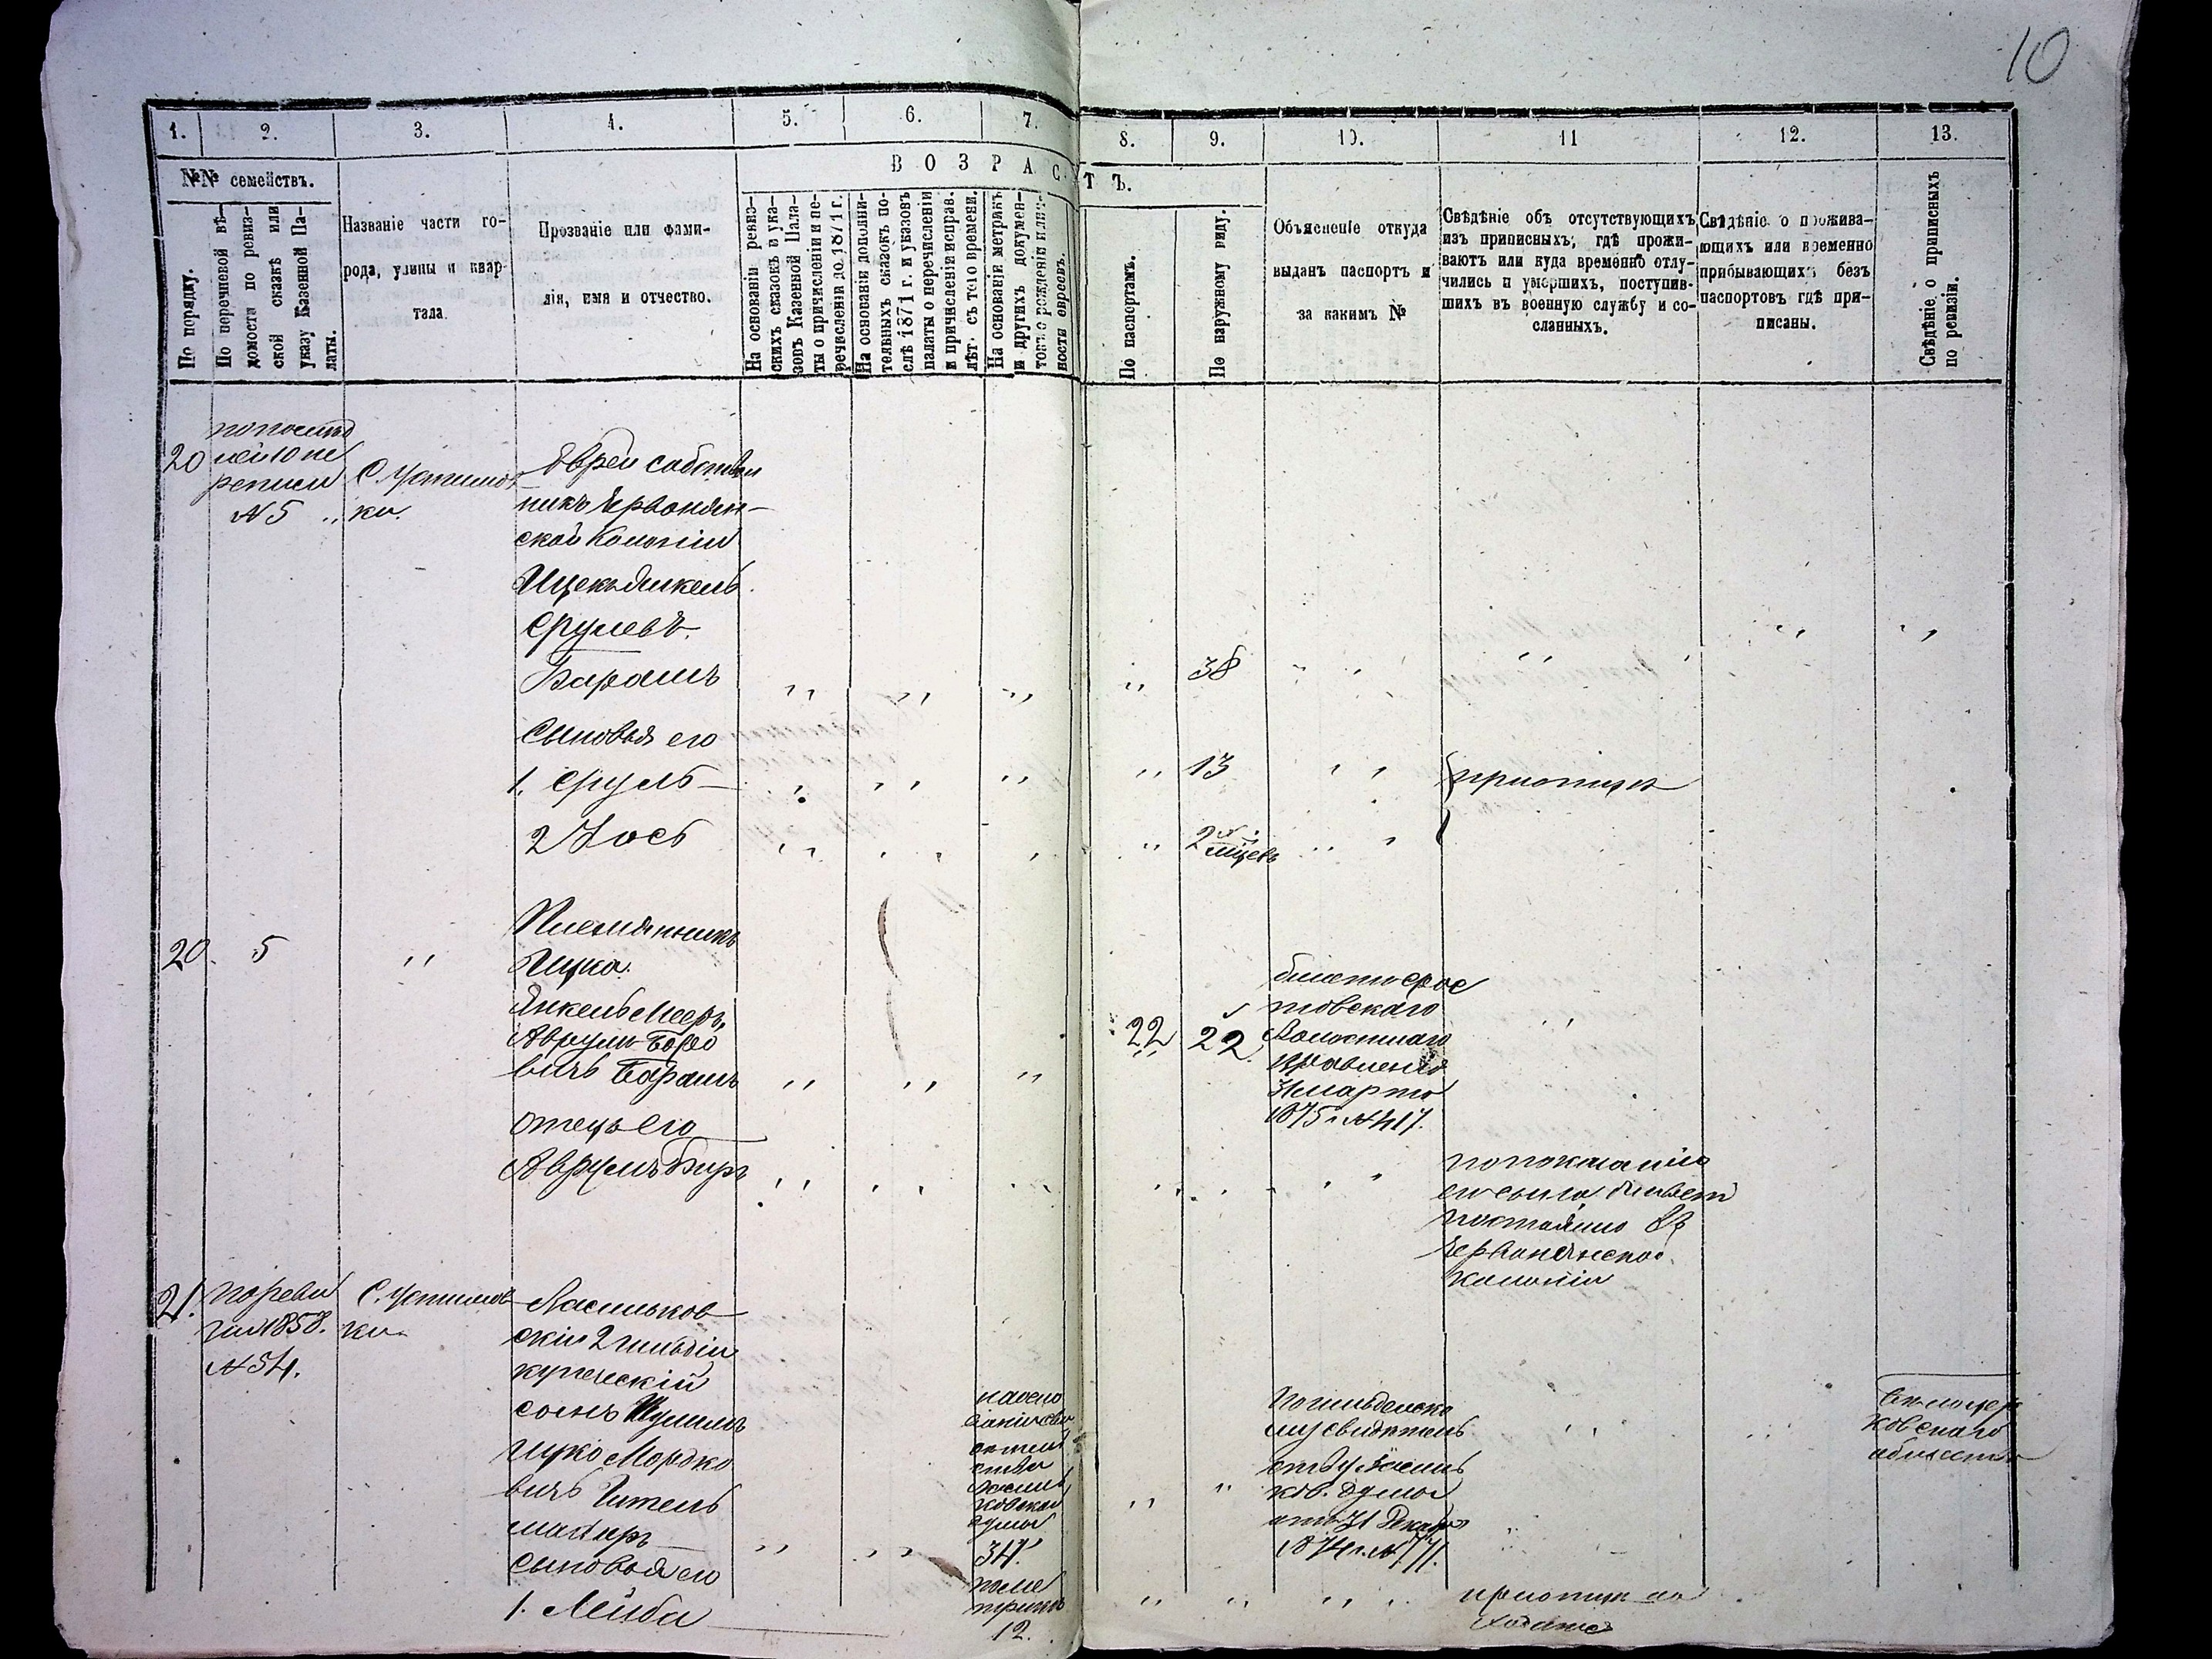 10
1. 2. 3. 4. 5. 6. 7. 8. 9. 10. 11 12. 13.
№№ семействъ.
По порядку.
По перечневой вѣ-
домости по ревиз-
ской сказкѣ или
указу Казенной Па-
латы.
Названіе части го-
рода, улицы и квар-
тала.
Прозваніе или фами-
лія, имя и отчество.
ВОЗРАСТЪ.
На основаніи ревиз-
скихъ сказокъ и ука-
зовъ Казенной Пала-
ты о причисленіи и пе-
речисленіи до 1871 г.
На основаніи дополни-
тельныхъ сказокъ по-
слѣ 1871 г. и указовъ
палаты о перечисленіи
и причисленіи исправ.
лѣт. съ того времени.
На основаніи метрикъ
и другихъ докумен-
товъ о рожденіи или
ности евреевъ.
По паспортамъ.
По наружному виду.
Объясненіе откуда
выданъ паспортъ и
за какимъ №
Свѣдѣніе объ отсутствующихъ
изъ приписныхъ, гдѣ прожи-
ваютъ или куда временно отлу-
чились и умершихъ, поступив-
шихъ въ военную службу и со-
сланныхъ.
Свѣдѣніе о прожива-
ющихъ или временно
прибывающихъ безъ
паспортовъ гдѣ при-
писаны.
Свѣдѣніе о приписныхъ
по ревизіи.
20
№ 5
С. Устимов
ки.
Евреи собствен
никъ Червонян-
ской Колоніи
Ицекъ Янкель
Срулевъ
Барашъ
38
Сыновья его
1. Сруль
13
2 Іось
2
20. 5
Племянникъ
Ицка.
Янкель Мееръ
Аврум-Беро
вичъ Барашъ
22 22
товскаго
Волостнаго
Правленія
31 марта
1875 г. № 417.
отецъ его
Аврумъ Беръ
по показанію
его сына живет
постоянно въ
Червонянской
колоніи
21. по реви
зіи 1858.
№ 54.
С. Устимов
ки
Васильков
скій 2 гильдіи
купеческій
сынъ Шулимъ
Ицко Мордко
вичъ Тительмаіеръ
34.
по гильдейско
му свидѣтель
ству Василь
ков. Думы
отъ 31 Декабря
1874 г. №
ковскаго
общества
сыновья его
1. Лейба
по
метрикѣ
12.